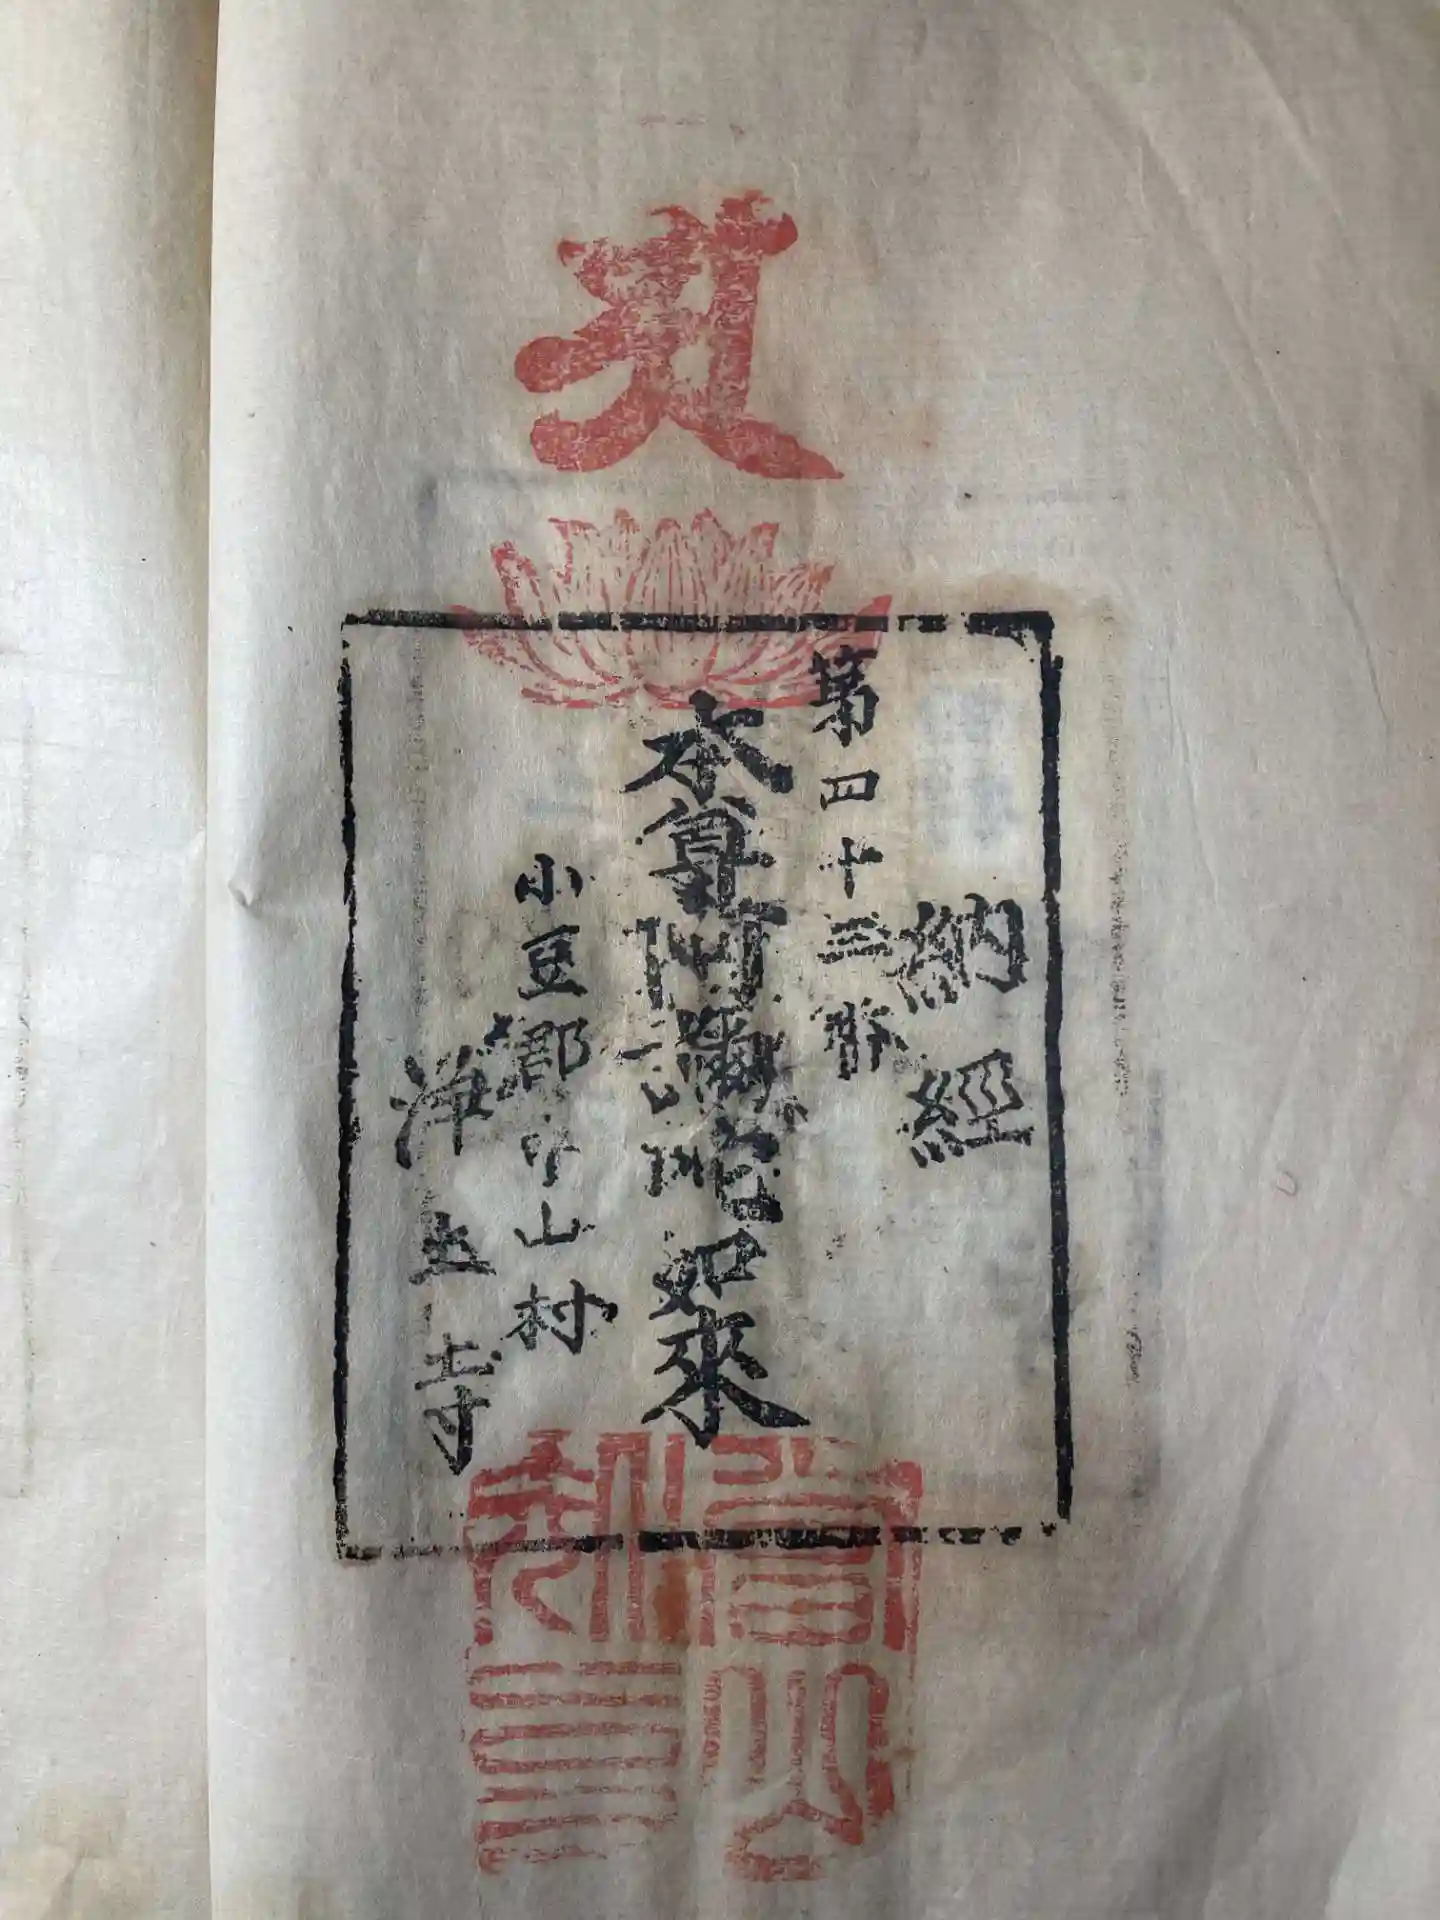 納經
第四十三番
本尊阿彌陀如來
小豆郡中山村
浄土寺